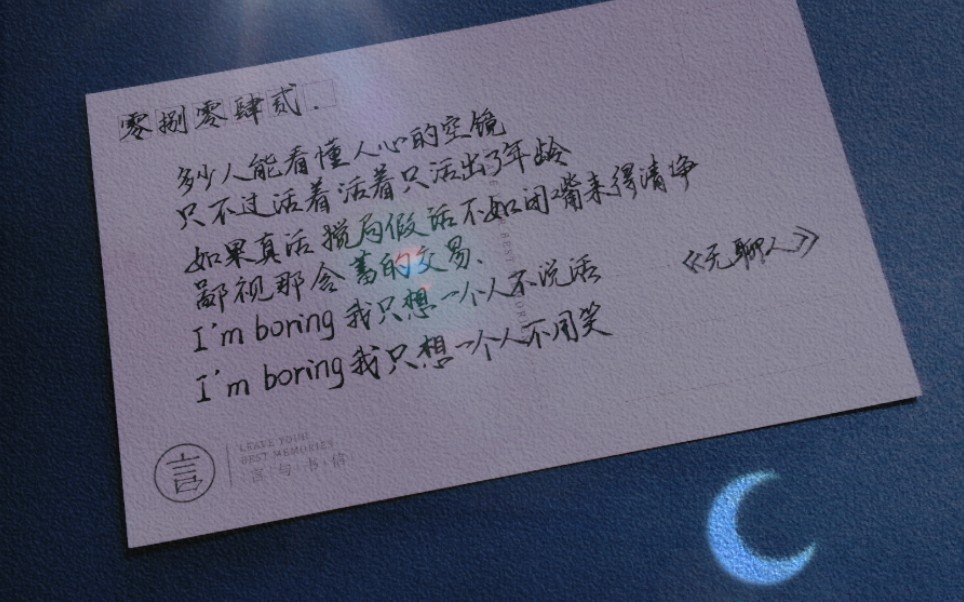 零捌零肆贰.
多少人能看懂人心的空镜
只不过活着活着只活出了年龄
如果真话搅局假话不如闭嘴来得清净
鄙视那含蓄的交易、
《无聊人》
I'm boring 我只想一个人不说话
I'm boring 我只想一个人不用笑
言
LEAVE YOUR
BEST MEMORIES
言与书信